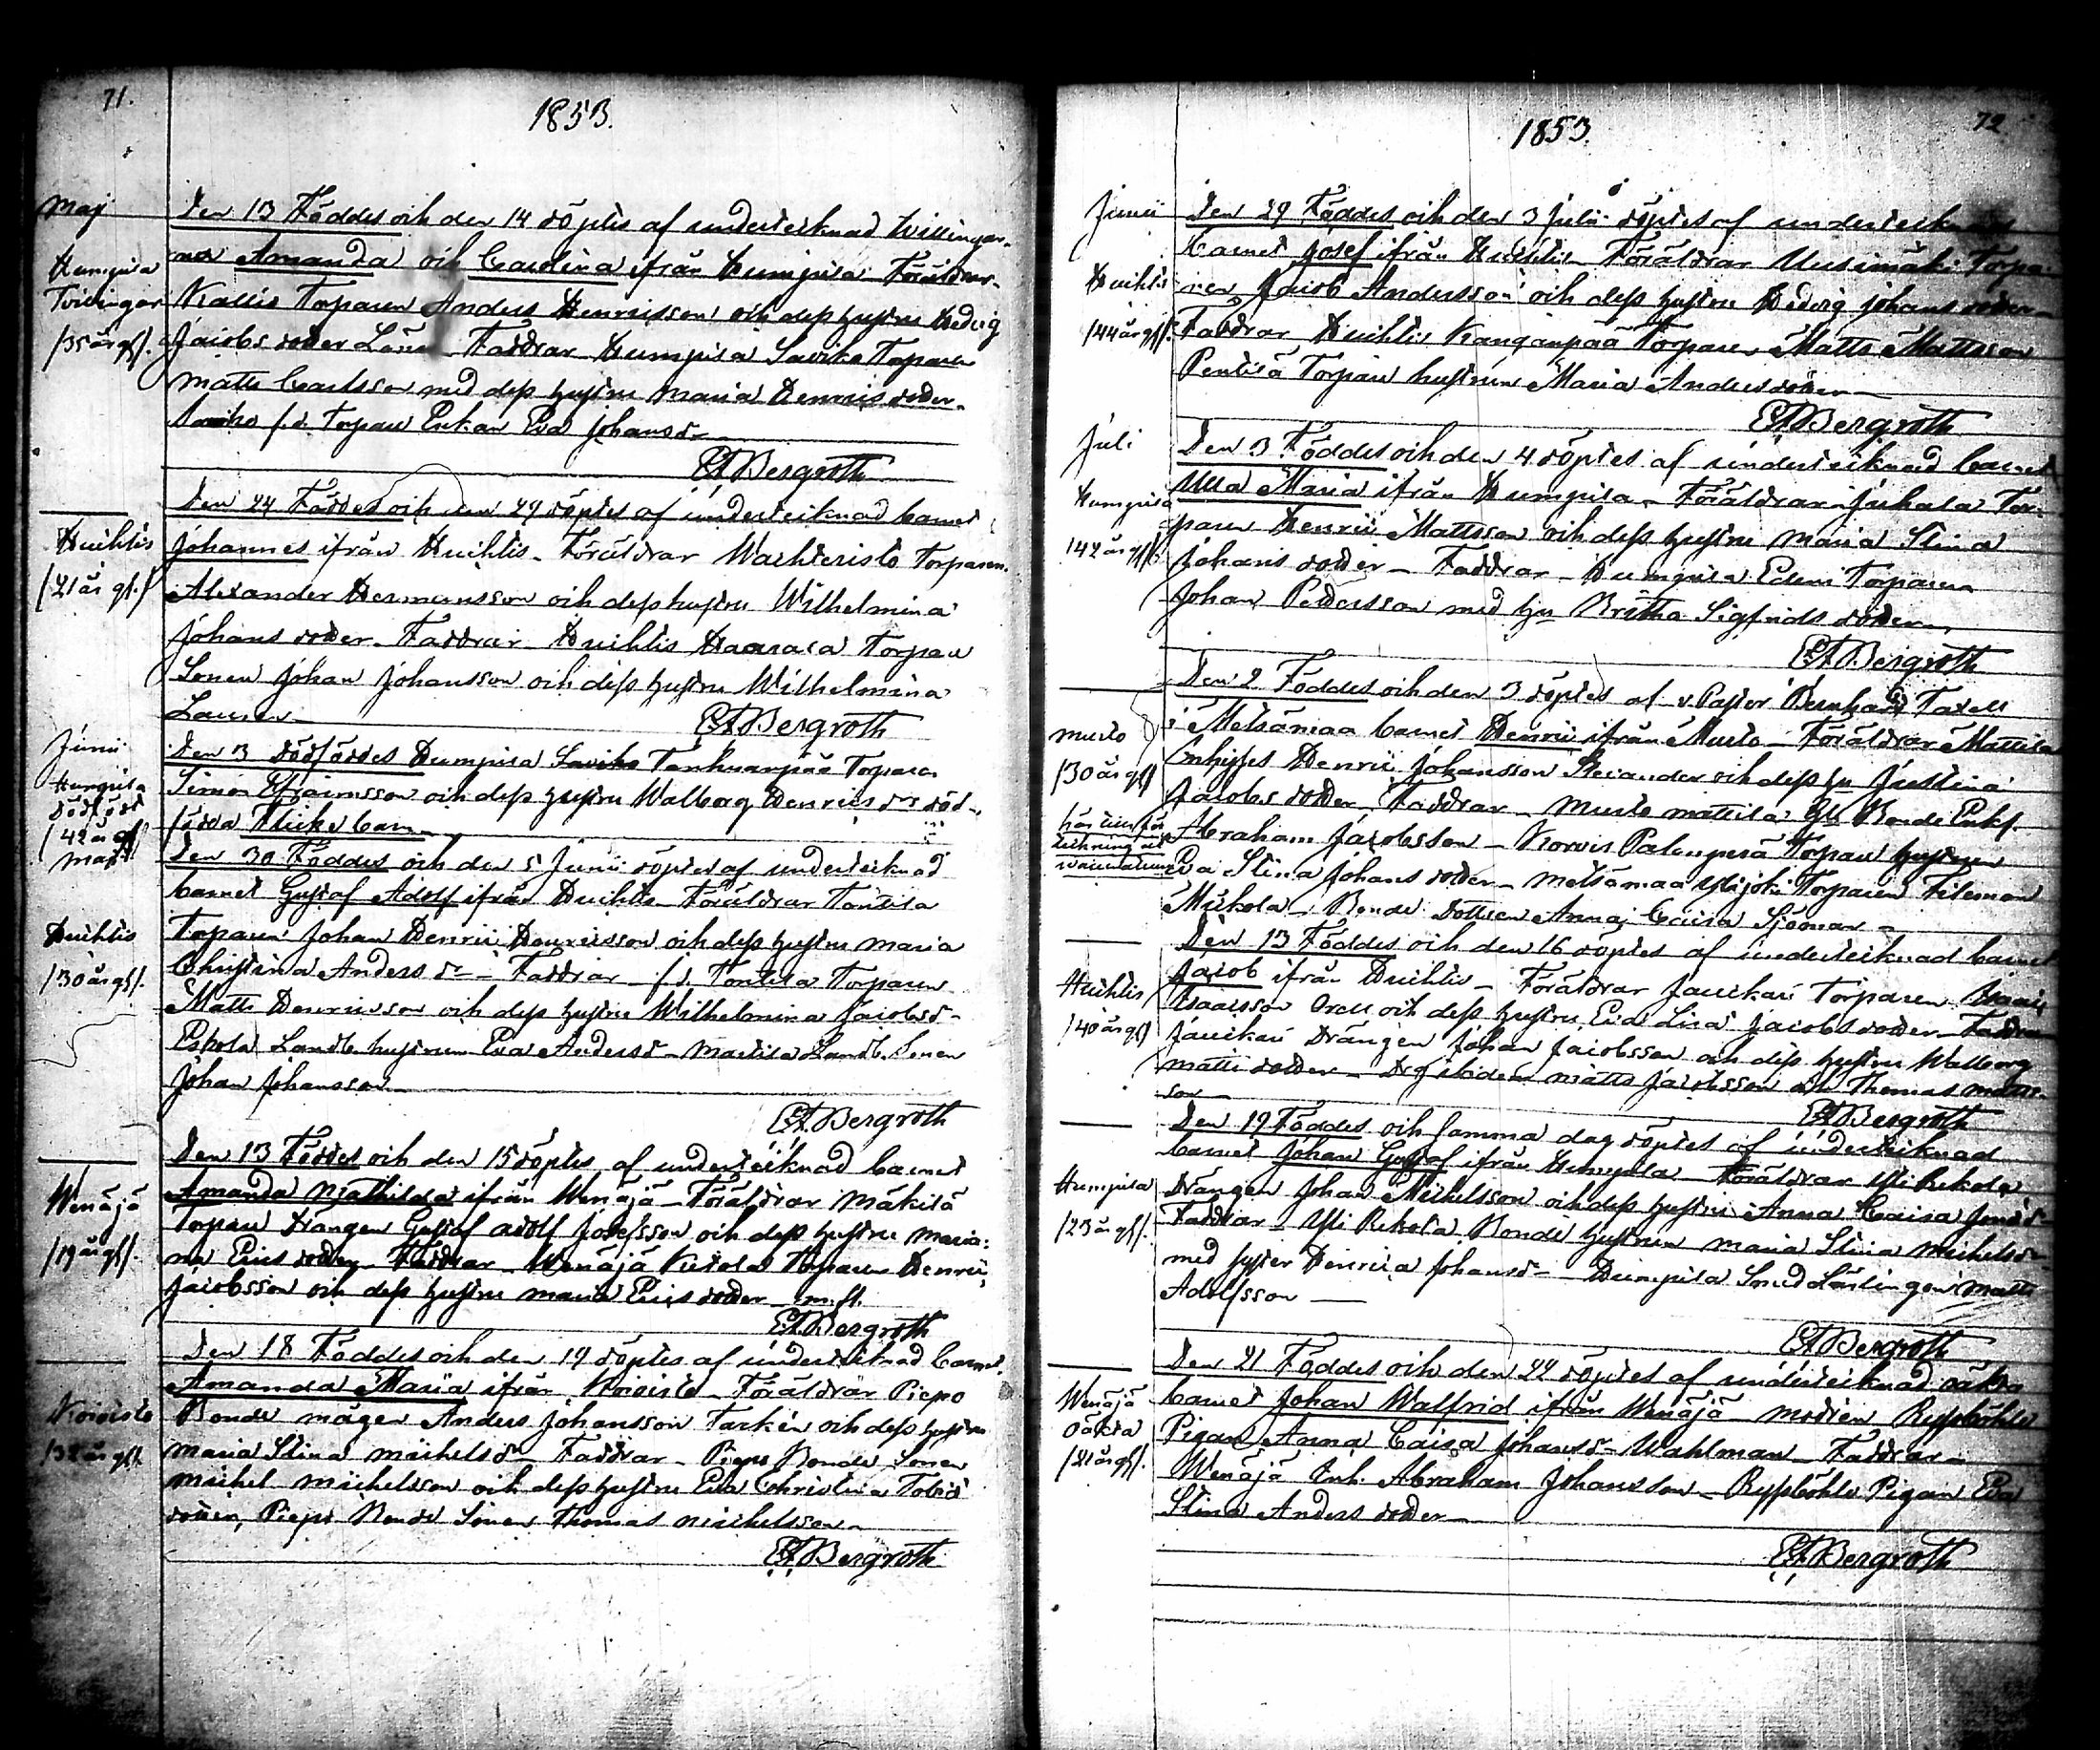 71.
1853.
Maj
Den 13 Föddes och den 14 döptes af undertecknad Tvillingar-
Humpila
Tvillingar
/35 år gl/.
na Amanda och Carolina ifrån Humpila Föräldrar
Kallio Torparen Anders Henricsson och dess hustru Hedvig
Jacobs dotter Faddrar Humpila Torparen
Matts Carlsson med dess hustru Maria Henrics dotter
f.d. Torpare Enkan Eva Johansdr
EABergroth
Den 24 Föddes och den 29 döptes af undertecknad barnet
Huhtis
/21 år gl./
Johannes ifrån Huhtis Föräldrar Torparen
Alexander Hermansson och dess hustru Wilhelmina
Johans dotter Faddrar Huhtis Haarala Torpare
Sonen Johan Johansson och dess hustru Wilhelmina
EABergroth
Junii
Humpila
Dödfödt
/42 år gl/
Den 3 dödföddes Humpila Tanhuanpää Torparen
Simon Efraimsson och dess hustru Walborg Henrics dr död-
födda Flicke barn
Maji
Den 30 Föddes och den 5 Junii döptes af undertecknad
barnet Gustaf Adolf ifrån Huhtis Föräldrar Tontila
Huhtis
/30 år gl/.
Torparen Johan Henric Henricsson och dess hustru Maria
Christina Anders dr Faddrar f.d. Tontila Torparen
Matts Henricsson och dess hustru Wilhelmina Jacobsd
Eskola Landb. hustrun Eva Andersd Landb. Sonen
Johan Johansson
EABergroth
Den 13 Föddes och den 15 döptes af undertecknad barnet
Wenäjä
/19 år gl/.
Amanda Mathilda ifrån Wenäjä Föräldrar Mäkilä
Torpare Drängen Gustaf Adolf Josefsson och dess hustru Maria-
na Erics dotter Faddrar Wenäjä Torparen Henric
Jacobsson och dess hustru Maria Erics dotter m. fl.
EABergroth
Den 18 Föddes och den 19 döptes af undertecknad barnet
Amanda Maria ifrån Koivisto Föräldrar Piepo
Koivisto
/32 år gl/.
Bonde mågen Anders Johansson Tarkén och dess hustru
Maria Stina Michelsd Faddrar Piepo Bonde Sonen
Michel Michelsson och dess hustru Eva Christina Tobis
dotter, Piepo Bonde Sonen Thomas Michelsson
EABergroth
72
1853.
Junii
Den 29 Föddes och den 3 Julii döptes af undertecknad
Huhtis
/44 år gl/.
barnet Josef ifrån Huhtis Föräldrar Uusimäki Torpa-
ren Jacob Andersson och dess hustru Hedvig Johans dotter
Faddrar Huhtis Kanganpää Torparen Matts Mattsson
Pentilä Torpare hustrun Maria Anders dotter
EABergroth
Juli
Den 3 Föddes och den 4 döptes af undertecknad barnet
Humpila
/42 år gl/.
Ulla Maria ifrån Humpila Föräldrar Juhala Tor-
paren Henric Mattsson och dess hustru Maria Stina
Johans dotter Faddrar Humpila Torparen
Johan Pedersson med hu Britha Sigfrids dotter
EABergroth
Den 2 Föddes och den 3 döptes af v. Pastor Bernhard Taxell
Murto
/30 år gl/
i Metsämaa barnet Henric ifrån Murto Föräldrar Mattila
Enhyses Henric Johansson och dess hu Justina
Jacobs dotter Faddrar Murto Mattila Bonde
Abraham Jacobsson Korvis Torpare hustrun
Eva Stina Johans dotter Metsämaa Ylijoki Torparen Filemon
Michola Bonde Dottren Anna Caisa Sjöman
Den 13 Föddes och den 16 döptes af undertecknad barnet
Huhtis
/40 år gl/
Jacob ifrån Huhtis Föräldrar Torparen Isaac
Isaacsson och dess hustru Eva Lisa Jacobs dotter Faddrar
Drängen Johan Jacobsson och dess hustru Walborg
Matts dotter Matts Jacobsson och Thomas Matts-
son
EABergroth
Den 19 Föddes och samma dag döptes af undertecknad
barnet Johan Gustaf ifrån Humpila Föräldrar Yli Rekola
Humpila
/23 år gl/.
Drängen Johan Michelsson och dess hustru Anna Caisa
Faddrar Yli Rekola Bonde hustrun Maria Stina Michelsd
med syster Henrica Johansd Humpila Smed Lärlingen Matts
Adolfsson
EABergroth
Den 21 Föddes och den 22 döptes af undertecknad oäkta
Wenäjä
oäkta
/21 år gl/.
barnet Johan Walfrid ifrån Wenäjä modren Ryssböhle
Pigan Anna Caisa Johansd Wahlman Faddrar
Wenäjä Inh. Abraham Johansson Ryssböhle Pigan Eva
Stina Anders dotter
EABergroth